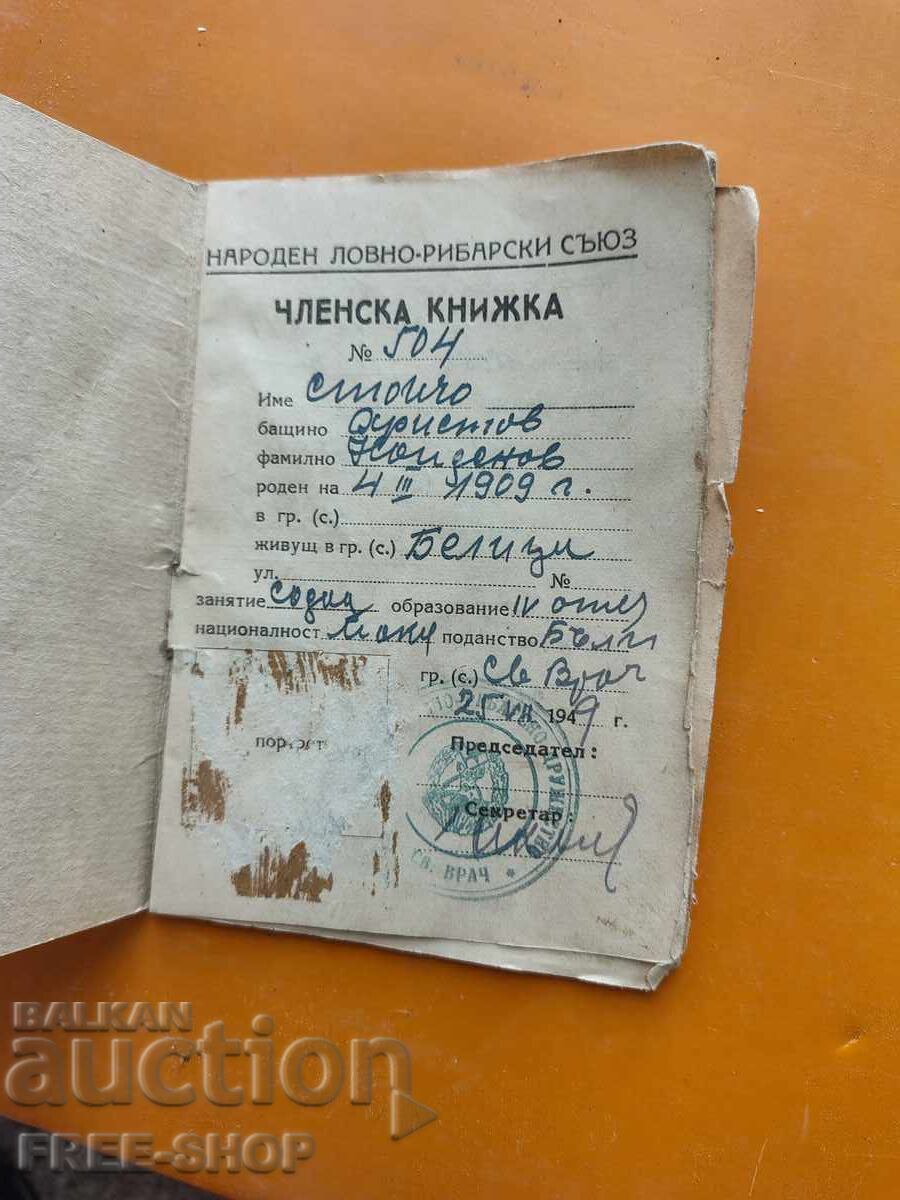 НАРОДЕН ЛОВНО-РИБАРСКИ СЪЮЗ
ЧЛЕНСКА КНИЖКА
№ 504
Име Стойчо
бащино Христов
фамилно Найденов
роден на 4 III 1909 г.
в гр. (с.)
живущ в гр. (с.) Белици
ул. №
занятие образование IV отд
националност поданство Бълг
гр. (с.) Св Врач
25 VII 1949 г.
портрет
Председател:
Секретар:
РИБАРСКО ДРУЖЕСТВО
СВ. ВРАЧ *
BALKAN
auction
FREE-SHOP